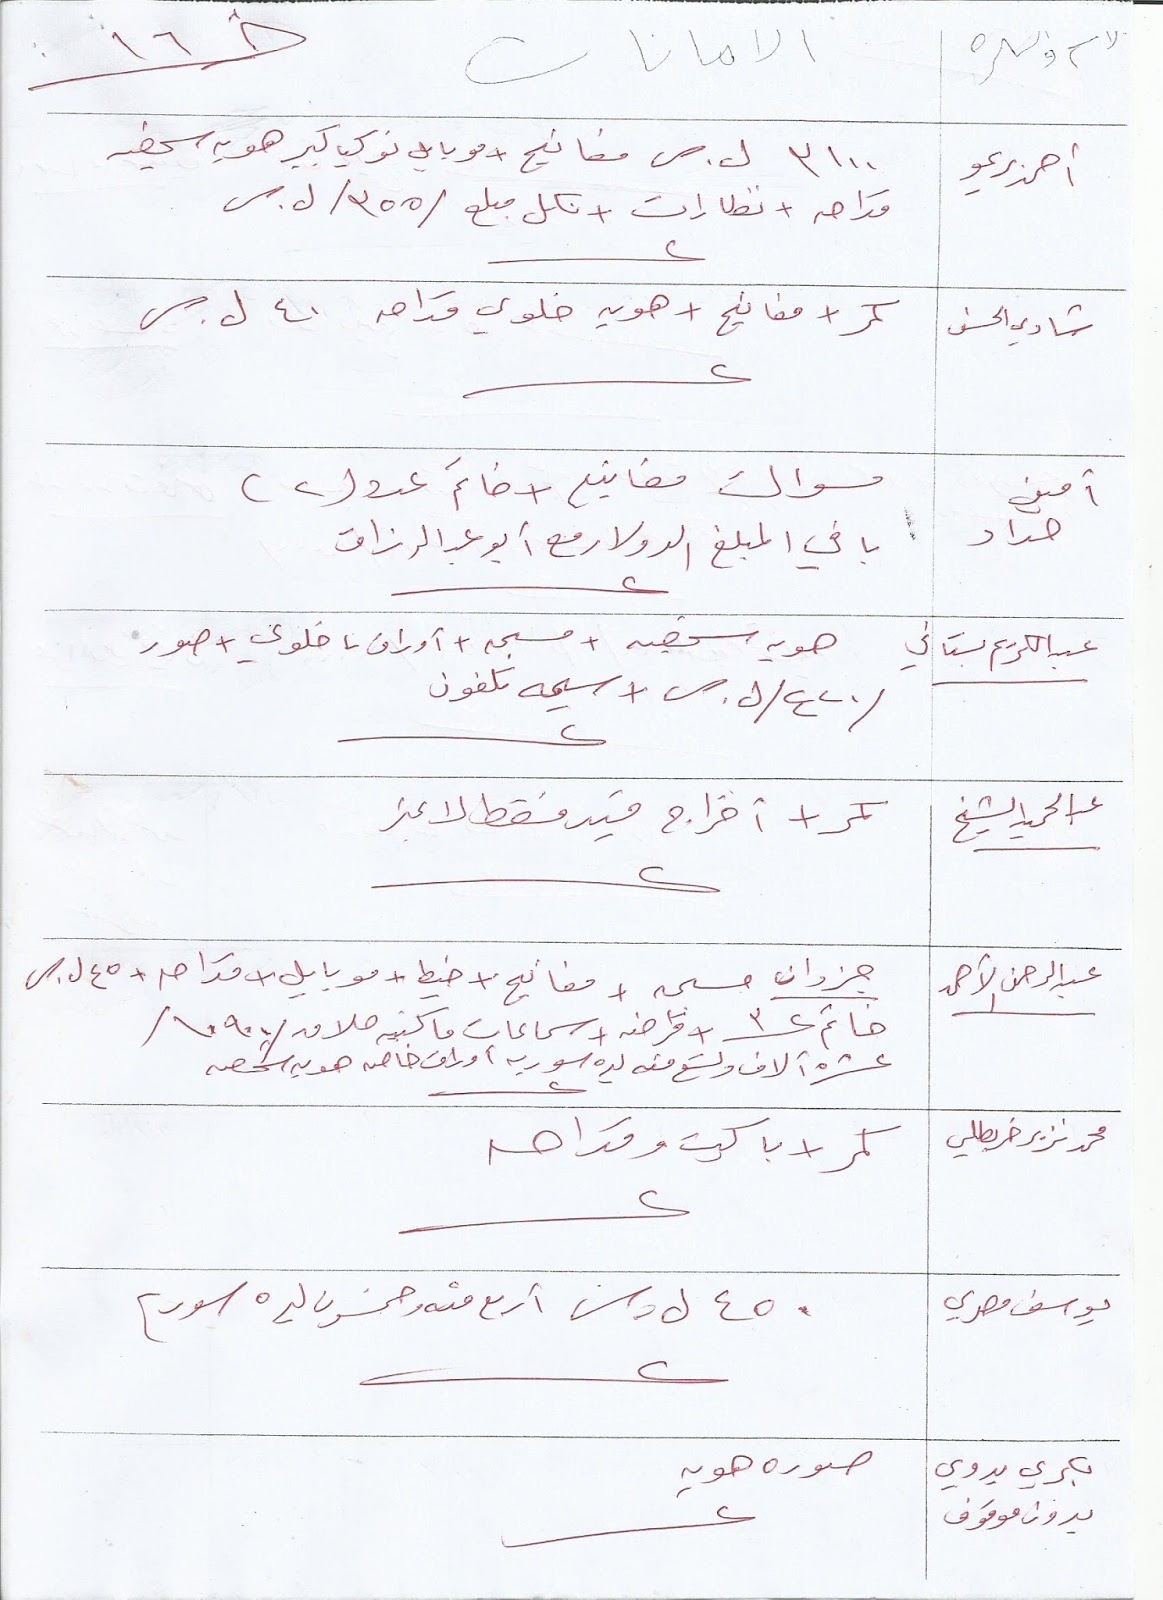 الامانات
أحمد ريحو
٣١٠٠ ل.س مفاتيح + موبايل نوكيا كبير هويه شخصيه
قداحه + نظارات + تكمل مبلغ /٣٥٥/ ل.س
شادي الحسن
كمر + مفاتيح + هويه خلوي قداحه ٤٠ ل.س
أمين
حداد
سواك مفاتيح + خاتم عدد (٢)
باقي المبلغ الدولار مع أبو عبد الرزاق
عبد الكريم بستاني
هويه شخصيه + مسبحه + أوراق + خلوي + صور
ل.س + سيمه تلفون
عبد الحميد الشيخ
كمر + أخراج قيد فقط لا غير
عبد الرحمن الأحمد
جزدان مسبحه + مفاتيح + خيط + موبايل + قداحه + ٤٥ ل.س
خاتم ع٣ + قراضه + سماعات ماكنيه حلاقه /١٠٩٠٠/
عشرة آلاف وتسع مئه ليره سوريه أوراق خاصه هويه شخصه
محمد نزير خربطلي
كمر + باكيت وقداحه
يوسف مصري
٤٥٠ ل.س أربع مئه وخمسون ليره سوري
بكري بدوي
بدون موقوف
صوره هويه